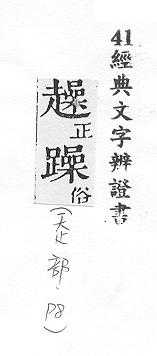 41經典文字辨證書
趮正
躁俗
(走部.P8)